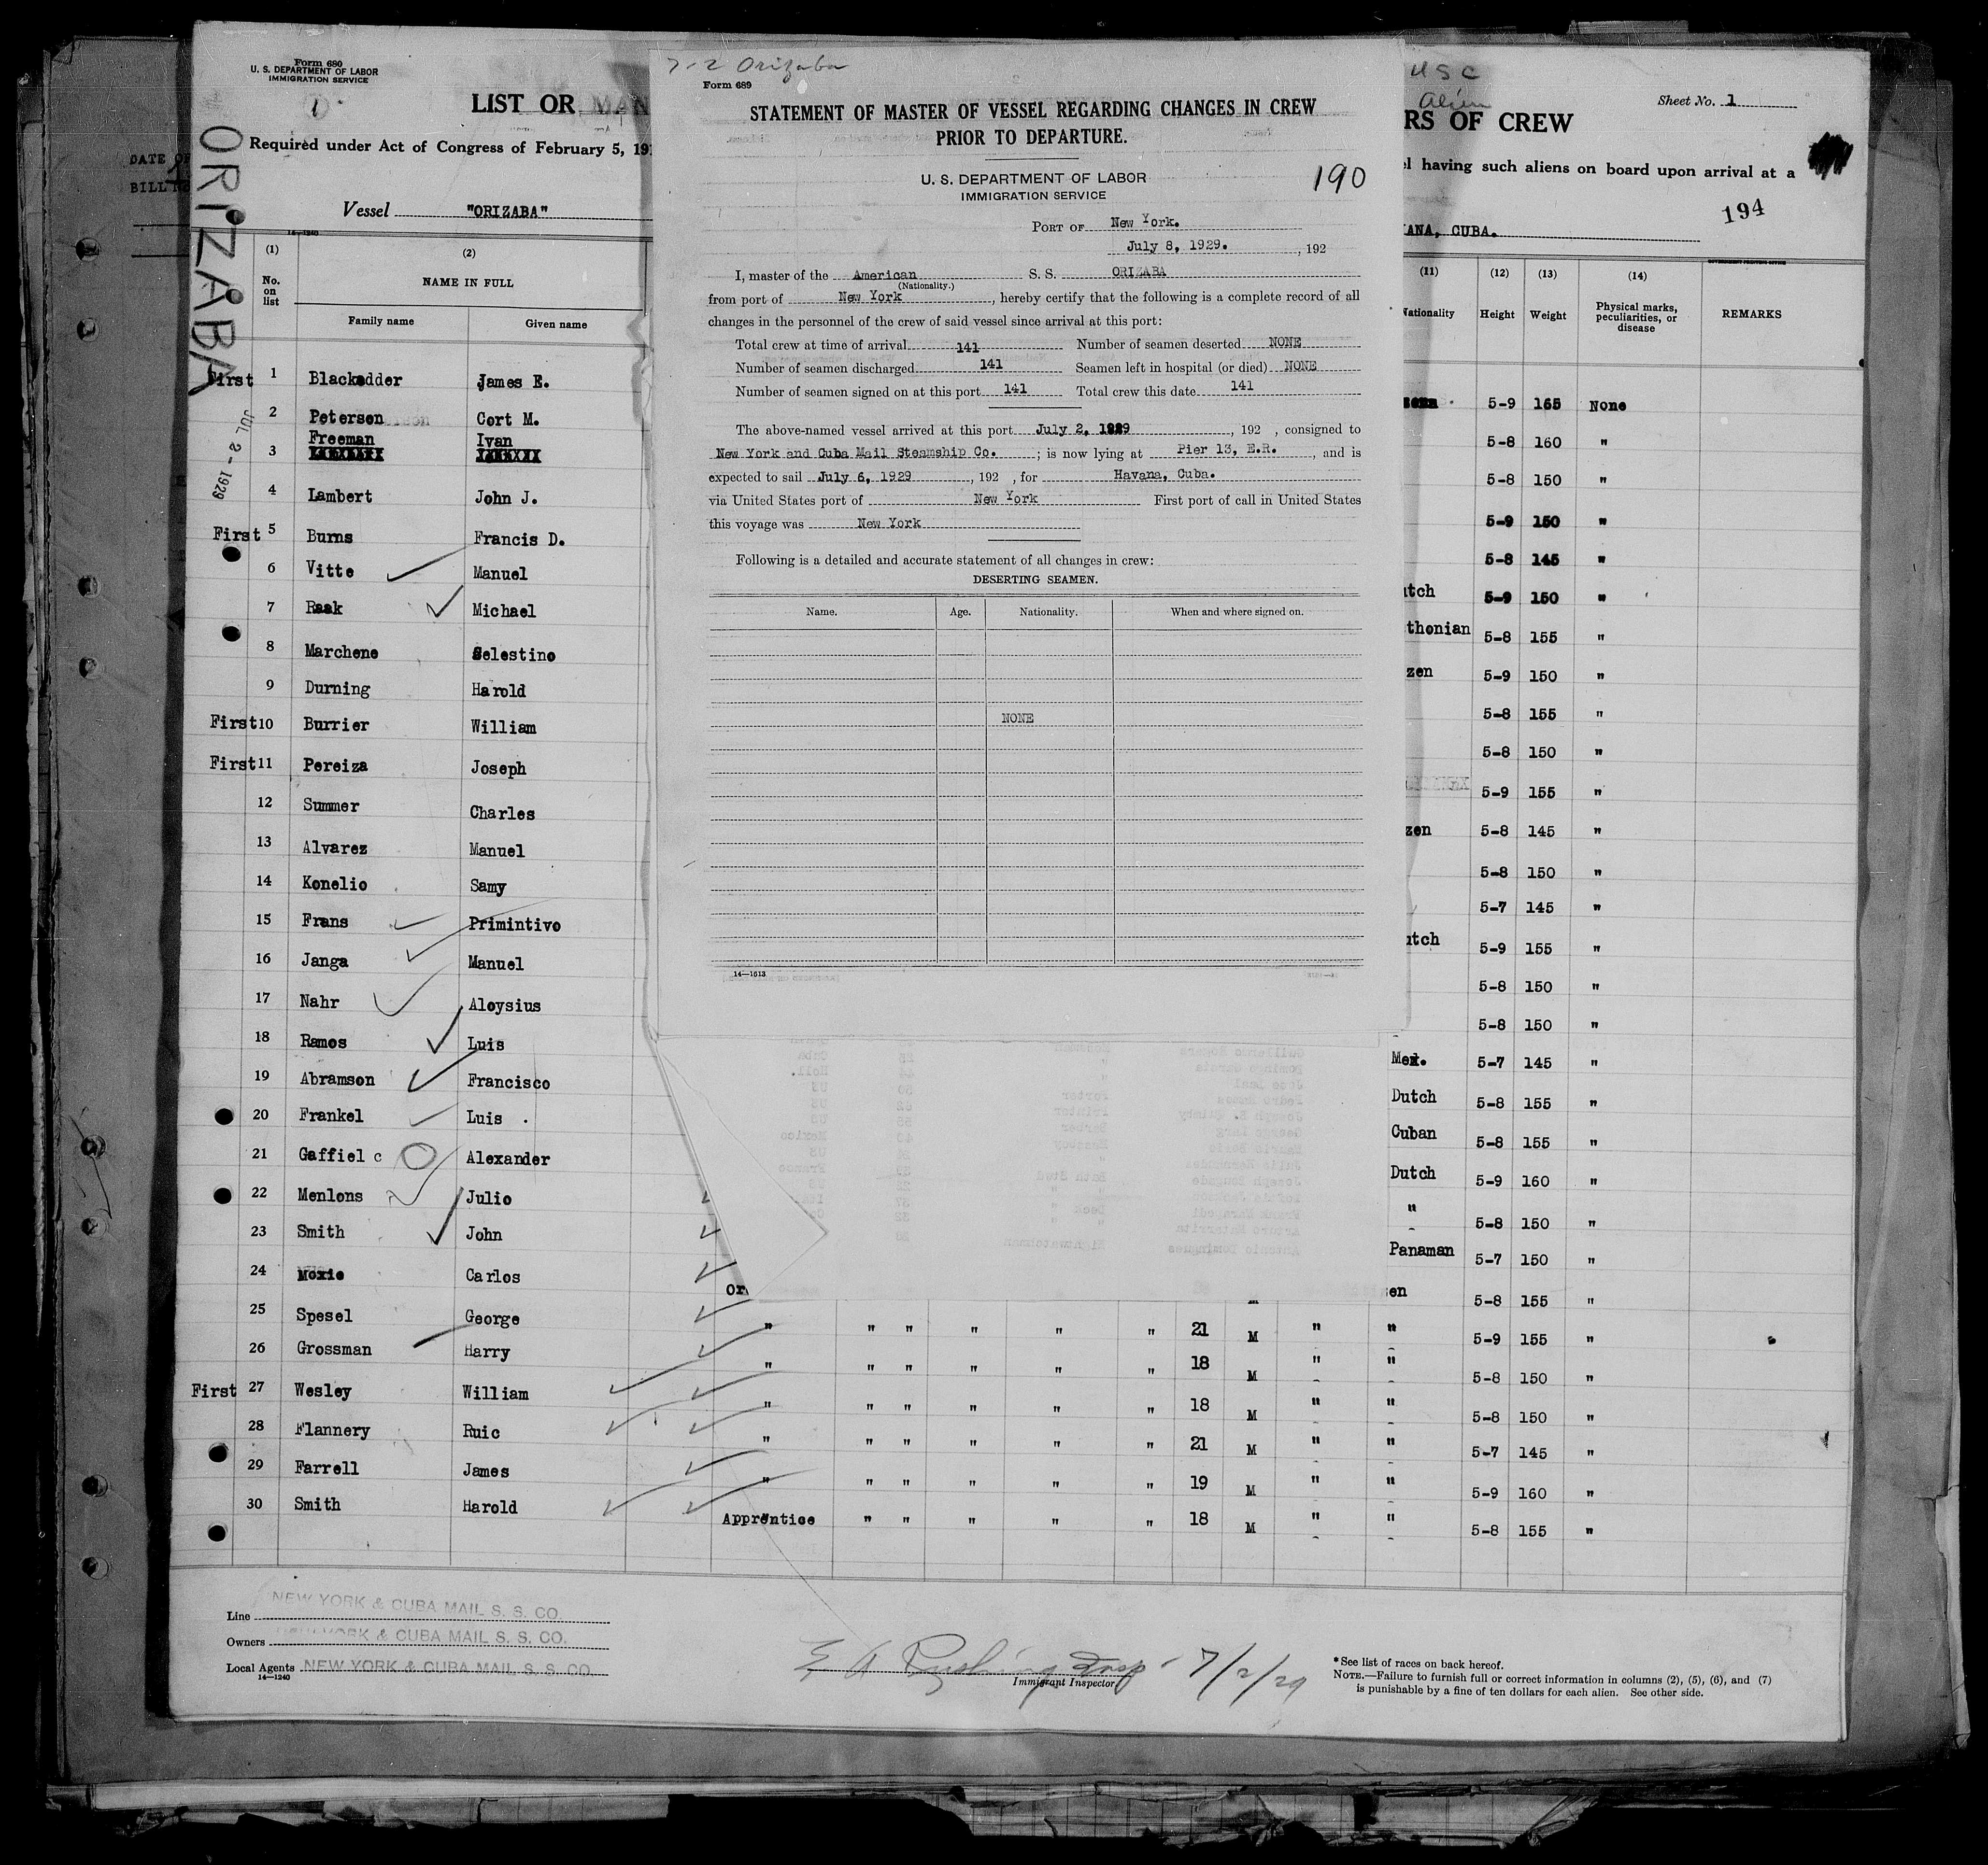 Form 680
U. S. DEPARTMENT OF LABOR
IMMIGRATION SERVICE
1
LIST OR MAN
Required under Act of Congress of February 5, 19
Vessel "ORIZABA"
ORIZABA
JUL 2 - 1929
DATE OF
BILL
(1) (2)
No. on list
NAME IN FULL
Family name Given name
First 1 Blackadder James E.
2 Petersen Cort M.
Freeman Ivan
3
4 Lambert John J.
First 5 Burns Francis D.
6 Vitte Manuel
7 Raak Michael
8 Marchene Selestino
9 Durning Harold
First 10 Burrier William
First 11 Pereiza Joseph
12 Summer Charles
13 Alvarez Manuel
14 Konelio Samy
15 Frans Primintivo
16 Janga Manuel
17 Nahr Aloysius
18 Ramos Luis
19 Abramson Francisco
20 Frankel Luis
21 Gaffiel c Alexander
22 Menlons Julio
23 Smith John
24 Moxie Carlos
25 Spesel George
26 Grossman Harry
First 27 Wesley William
28 Flannery Ruic
29 Farrell James
30 Smith Harold
7-2 Orizaba
Form 689
STATEMENT OF MASTER OF VESSEL REGARDING CHANGES IN CREW
PRIOR TO DEPARTURE.
U. S. DEPARTMENT OF LABOR
IMMIGRATION SERVICE
190
PORT OF New York.
July 8, 1929. , 192
I, master of the American S. S. ORIZABA
(Nationality.)
from port of New York , hereby certify that the following is a complete record of all
changes in the personnel of the crew of said vessel since arrival at this port:
Total crew at time of arrival 141 Number of seamen deserted NONE
Number of seamen discharged 141 Seamen left in hospital (or died) NONE
Number of seamen signed on at this port 141 Total crew this date 141
The above-named vessel arrived at this port July 2, 1929 , 192 , consigned to
New York and Cuba Mail Steamship Co. ; is now lying at Pier 13, E.R. , and is
expected to sail July 6, 1929 , 192 , for Havana, Cuba.
via United States port of New York First port of call in United States
this voyage was New York
Following is a detailed and accurate statement of all changes in crew:
DESERTING SEAMEN.
Name. Age. Nationality. When and where signed on.
NONE
14—1513
USC
Alien
RS OF CREW
Sheet No. 1
el having such aliens on board upon arrival at a
194
ANA, CUBA.
(11) (12) (13) (14)
Nationality Height Weight Physical marks, peculiarities, or disease REMARKS
5-9 165 None
5-8 160 "
5-8 150 "
5-9 150 "
5-8 145 "
utch 5-9 150 "
thonian 5-8 155 "
zen 5-9 150 "
5-8 155 "
5-8 150 "
5-9 155 "
zen 5-8 145 "
5-8 150 "
5-7 145 "
utch 5-9 155 "
5-8 150 "
5-8 150 "
Mex. 5-7 145 "
Dutch 5-8 155 "
Cuban 5-8 155 "
Dutch 5-9 160 "
" 5-8 150 "
Panaman 5-7 150 "
or en 5-8 155 "
" " " " " " 21 M " " 5-9 155 "
" " " " " " 18 M " " 5-8 150 "
" " " " " " 18 M " " 5-8 150 "
" " " " " " 21 M " " 5-7 145 "
" " " " " " 19 M " " 5-9 160 "
Apprentice " " " " " 18 M " " 5-8 155 "
Line NEW YORK & CUBA MAIL S. S. CO.
Owners NEW YORK & CUBA MAIL S. S. CO.
Local Agents NEW YORK & CUBA MAIL S. S. CO.
14—1240
Insp 7/2/29
Immigrant Inspector
*See list of races on back hereof.
NOTE.—Failure to furnish full or correct information in columns (2), (5), (6), and (7)
is punishable by a fine of ten dollars for each alien. See other side.